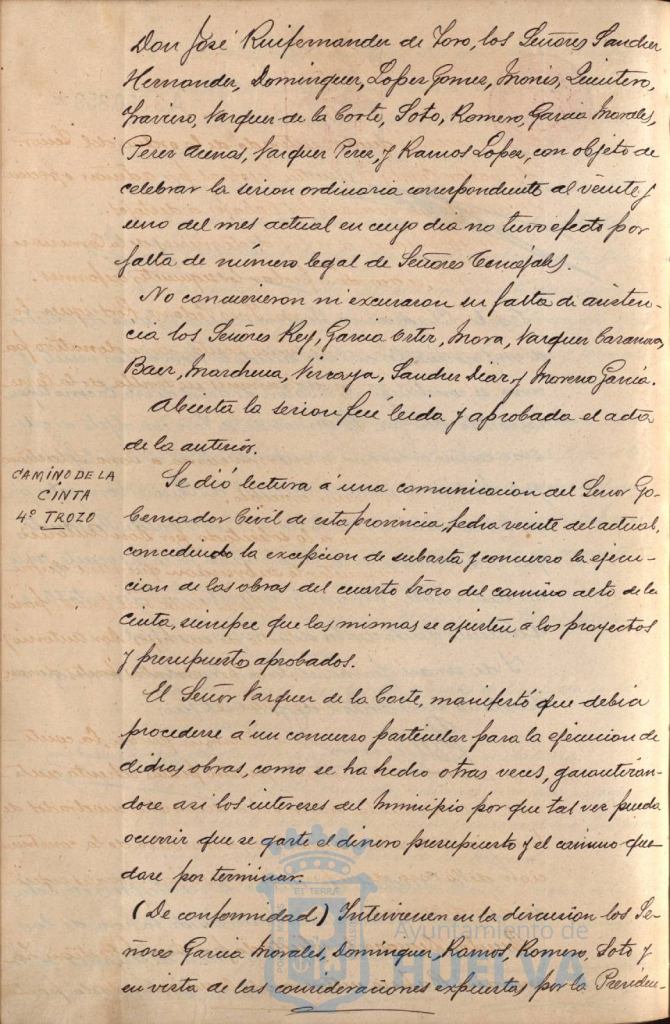 Don José Ruifernandez de Toro, los Señores Sanchez
Hernandez, Dominguez, Lopez Gomez, Monis, Quintero,
Traviero, Vazquez de la Corte, Soto, Romero, Garcia Morales,
Perez Arenas, Vazquez Perez, y Ramos Lopez, con objeto de
celebrar la sesion ordinaria correspondiente al veinte y
uno del mes actual en cuyo dia no tuvo efecto por
falta de número legal de Señores Concejales.
No concurrieron ni excusaron su falta de asisten-
cia los Señores Rey, Garcia Ortiz, Mora, Vazquez Casanova,
Baez, Marchena, Vizcaya, Sanchez Diaz y Moreno Garcia.
Abierta la sesion fué leida y aprobada el acta
de la anterior.
CAMINO DE LA
CINTA
4º TROZO
Se dió lectura á una comunicacion del Señor Go-
bernador Civil de esta provincia, fecha veinte del actual,
concediendo la excepcion de subasta y concurso la ejecu-
cion de las obras del cuarto trozo del camino alto de la
Cinta, siempre que las mismas se ajusten á los proyectos
y presupuesto aprobados.
El Señor Vazquez de la Corte, manifestó que debia
procederse á un concurso particular para la ejecucion de
dichas obras, como se ha hecho otras veces, garantizan-
dose asi los intereses del Municipio por que tal vez pueda
ocurrir que se gaste el dinero presupuesto y el camino que-
dase por terminar.
(De conformidad) Intervienen en la discusion los Se-
ñores Garcia Morales, Dominguez, Ramos, Romero, Soto y
en vista de las consideraciones expuestas por la Presiden-
Ayuntamiento de
HUELVA